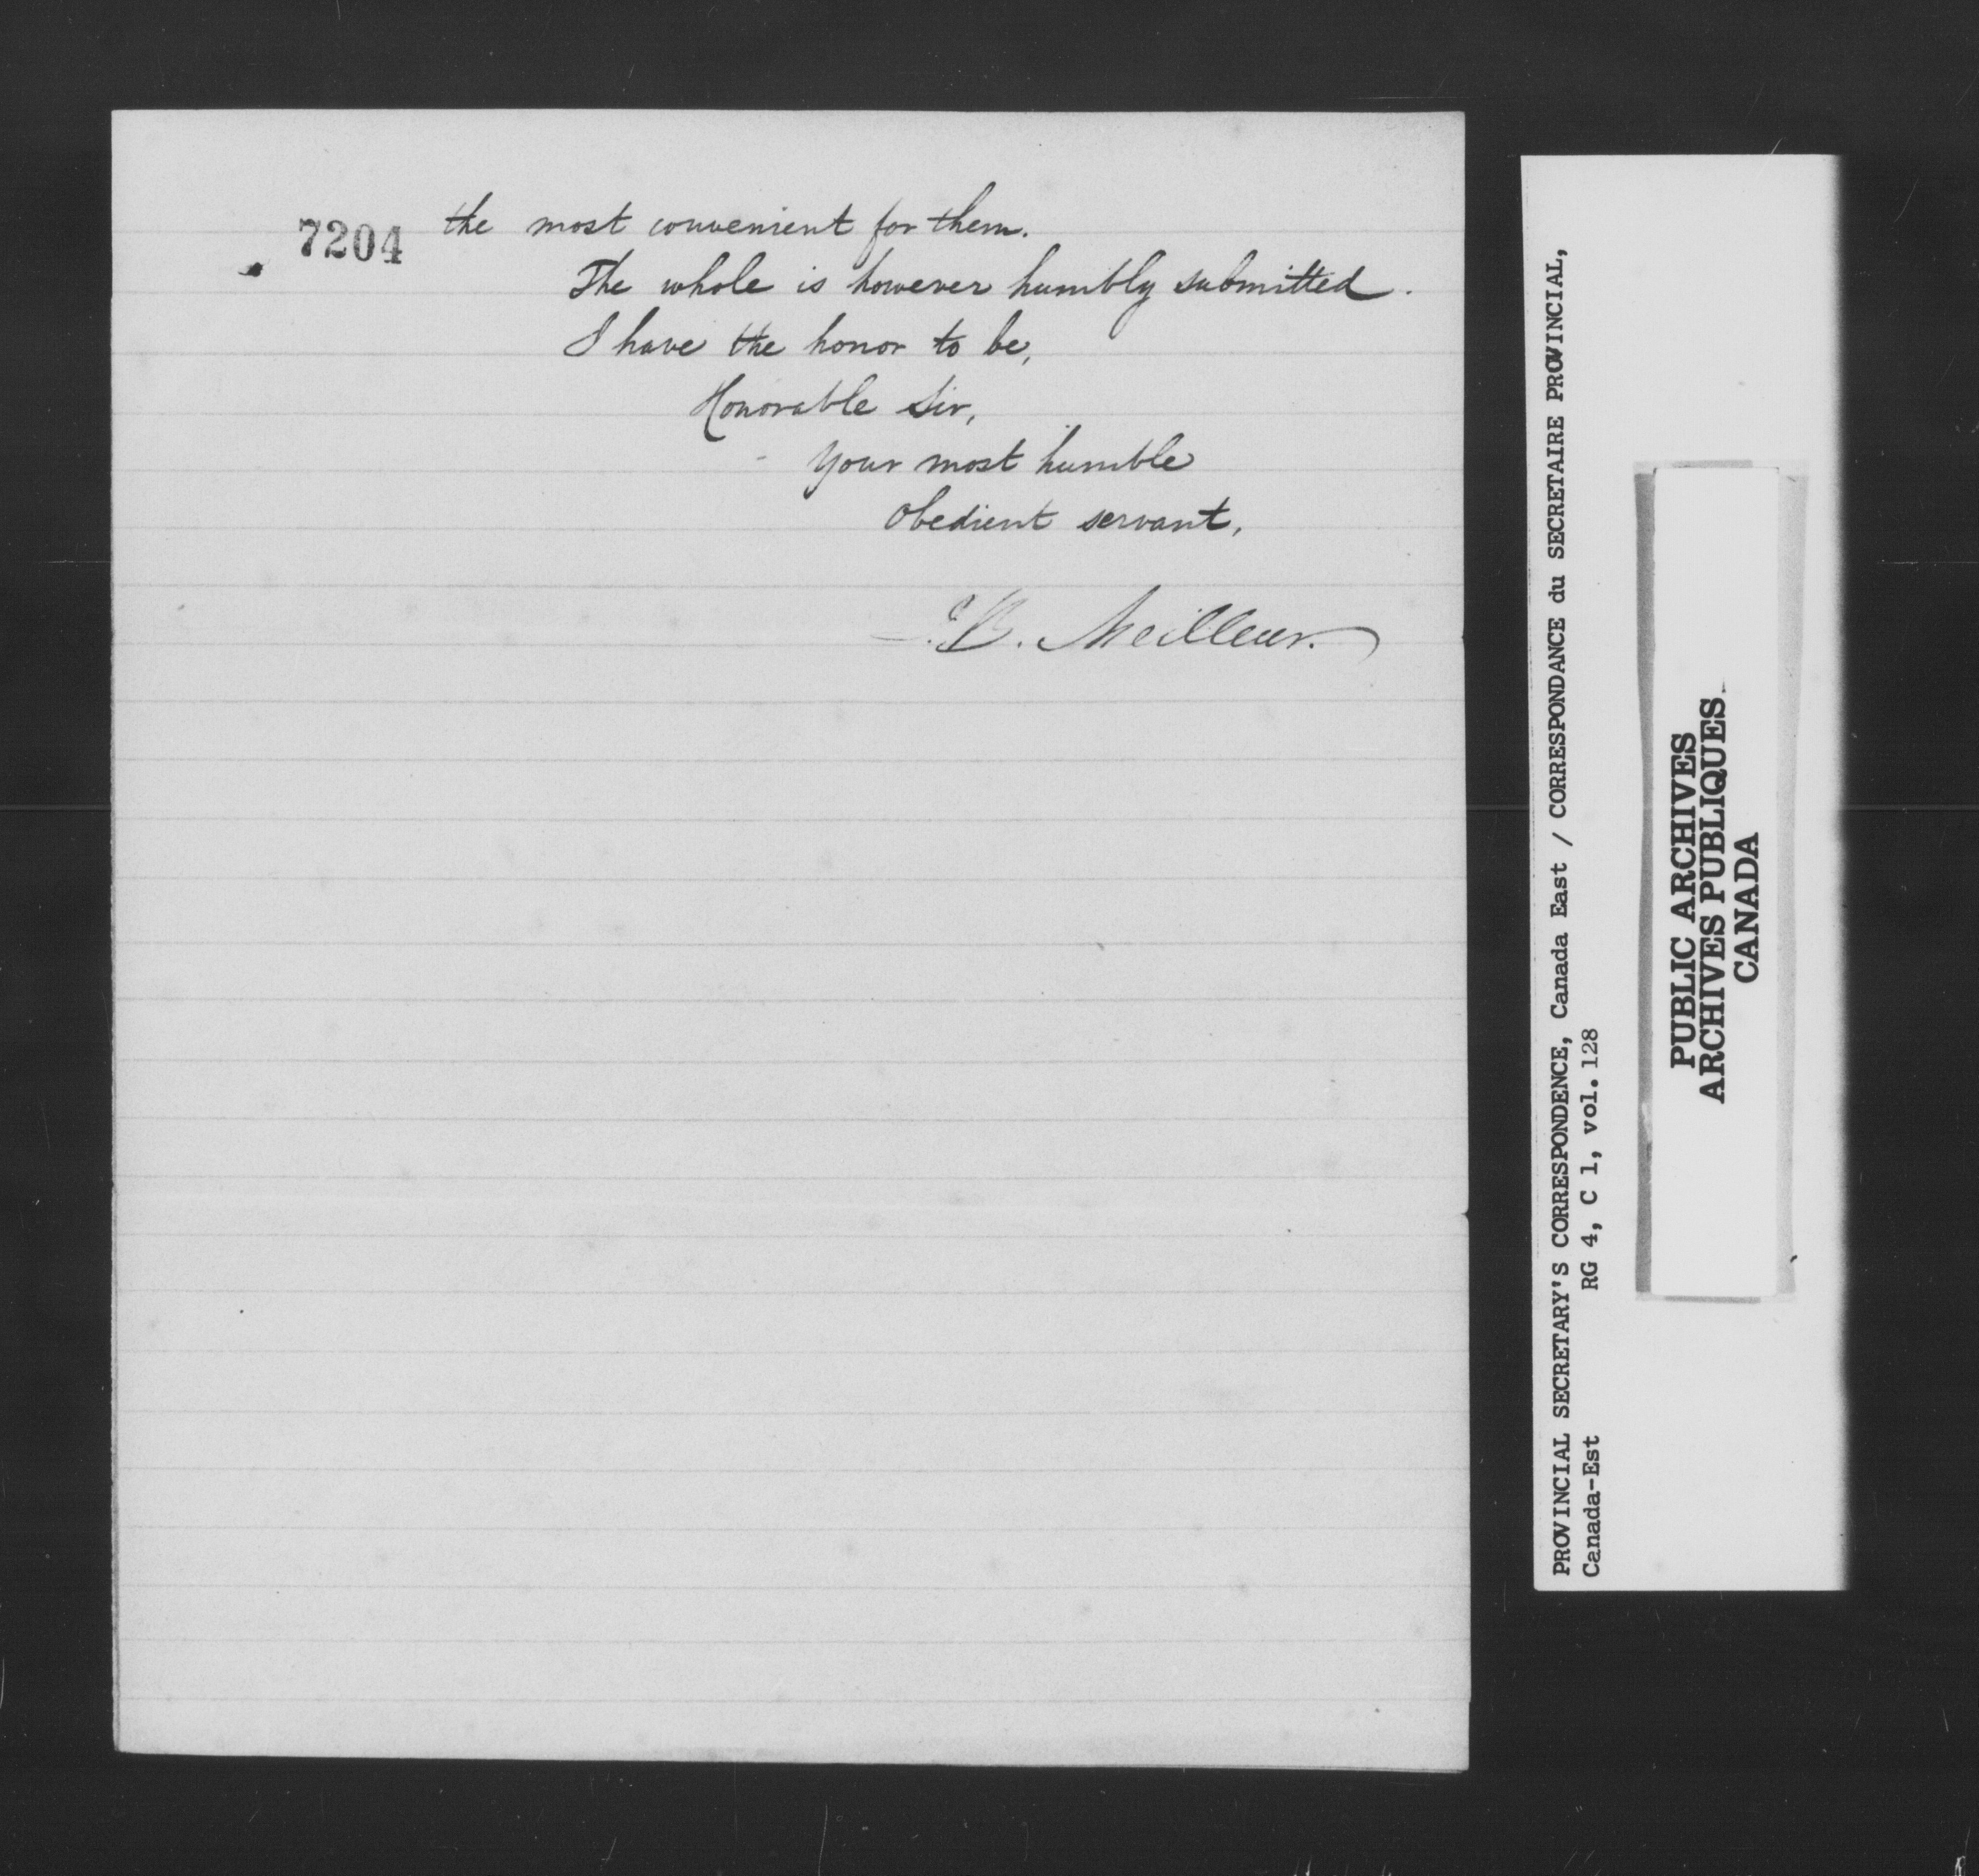 7204
the most convenient for them.
The whole is however humbly submitted.
I have the honor to be,
Honorable Sir,
Your most humble
obedient servant,
J. B. Meilleur.
PROVINCIAL SECRETARY'S CORRESPONDENCE, Canada East / CORRESPONDANCE du SECRETAIRE PROVINCIAL,
Canada-Est RG 4, C 1, vol. 128
PUBLIC ARCHIVES
ARCHIVES PUBLIQUES
CANADA